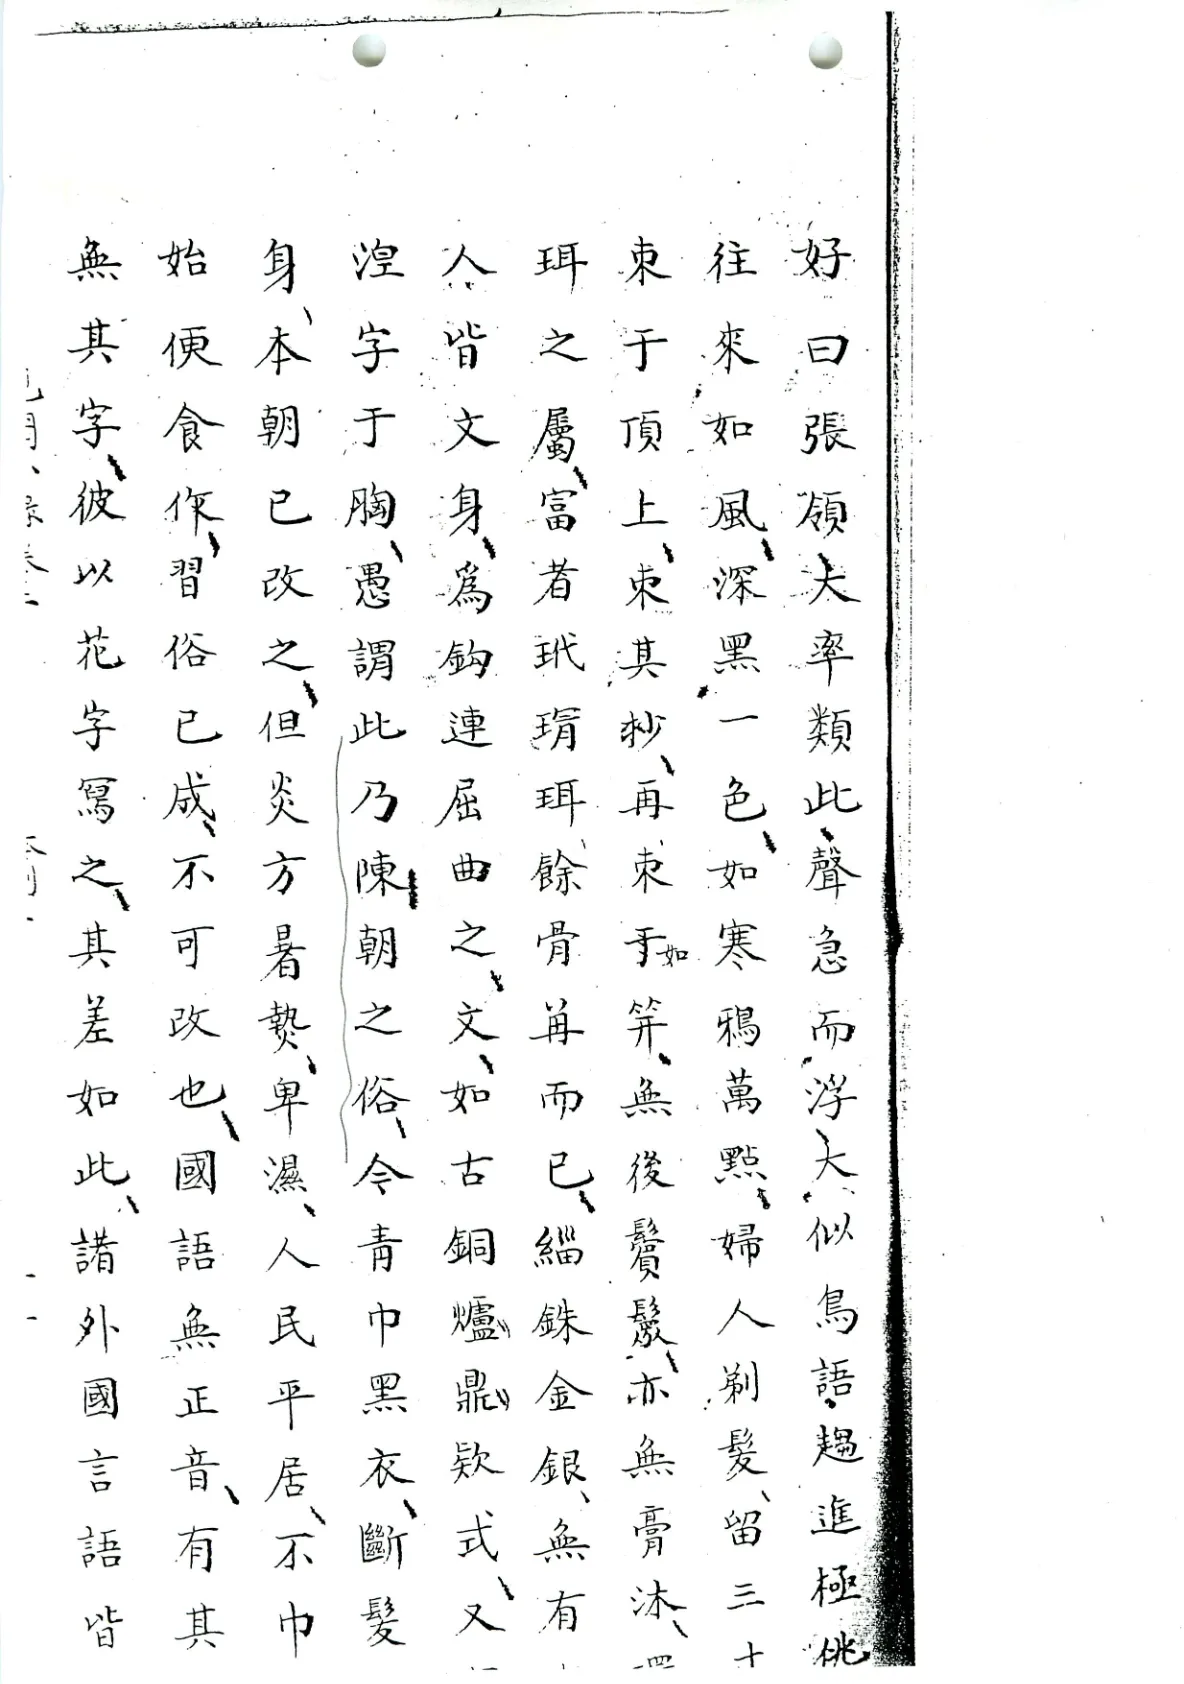 好曰張領大率類此聲急而浮大似鳥語趨進極佻
往來如風深黑一色如寒鴉萬點婦人剃髮留三十
束于頂上束其杪再束于如笄無後鬢鬟亦無膏沐
珥之屬富者玳瑁珥餘骨再而已緇銖金銀無有
人皆文身為鈎連屈曲之文如古銅爐鼎欵式又
涅字于胸愚謂此乃陳朝之俗今青巾黑衣斷髮
身本朝已改之但炎方暑熱卑濕人民平居不巾
始便食作習俗已成不可改也國語無正音有其
無其字彼以花字寫之其差如此諸外國言語皆